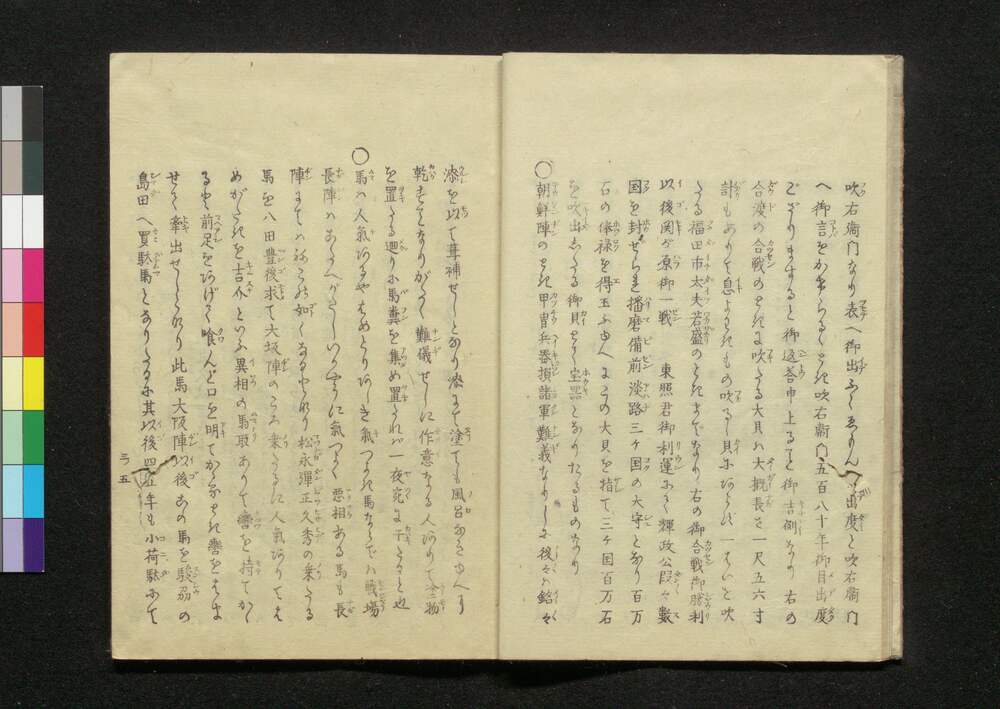 吹右衞門なり表へ御出ふくゑりん　出度と吹右衞門
へ御言をかけらるゝとき吹右衞門五百八十年御目出度
ござりまする と御返答申上るを御吉例なり右の
合渡の合戦のときに吹たる大貝ハ大概長さ一尺五六寸
計もありて息よわきもの吹 貝にあらず一 いと吹
たる福田市太夫若盛のときまでなり右の御合戦御勝利
以後関ヶ原御一戦　東照君御利運にて輝政公段々数
国を封ぜられ播磨備前淡路三ヶ国の大守となり百万
石の俸禄を得玉ふゆへにこの大貝を指て三ヶ国百万石
を吹出したる御貝とて宝器となりたるものなり
○朝鮮陣のとき甲冑兵器損諸軍難義なりしに後々ハ銘々
漆を以て葺補せしとなり漆にて塗ても風呂なきゆへに
乾きさなりがたく難儀せしに作意なる人ありて塗物
を置たる廻りに馬糞を集め置たれバ一夜宛に干たると也
○馬ハ人氣 やはめとり き氣つよき馬ならでハ戦場
長陣ハあたへがたしいかやうに氣つよく悪相ある馬も長
陣にてハねこの如くなるとなり松永弾正久秀の乗たる
馬を八田豊後求て大坂陣のころ乗たるに人氣ありては
めがたきを吉介といふ異相の馬取ありて轡を持てかゝ
るに前足をあげて喰んと口を明てかゝるとき轡をはま
せて牽出せしとなり此馬大阪陣以後此の馬を駿州の
島田へ買駄馬となりたるに其以後四五年も小荷駄にて
ラ五